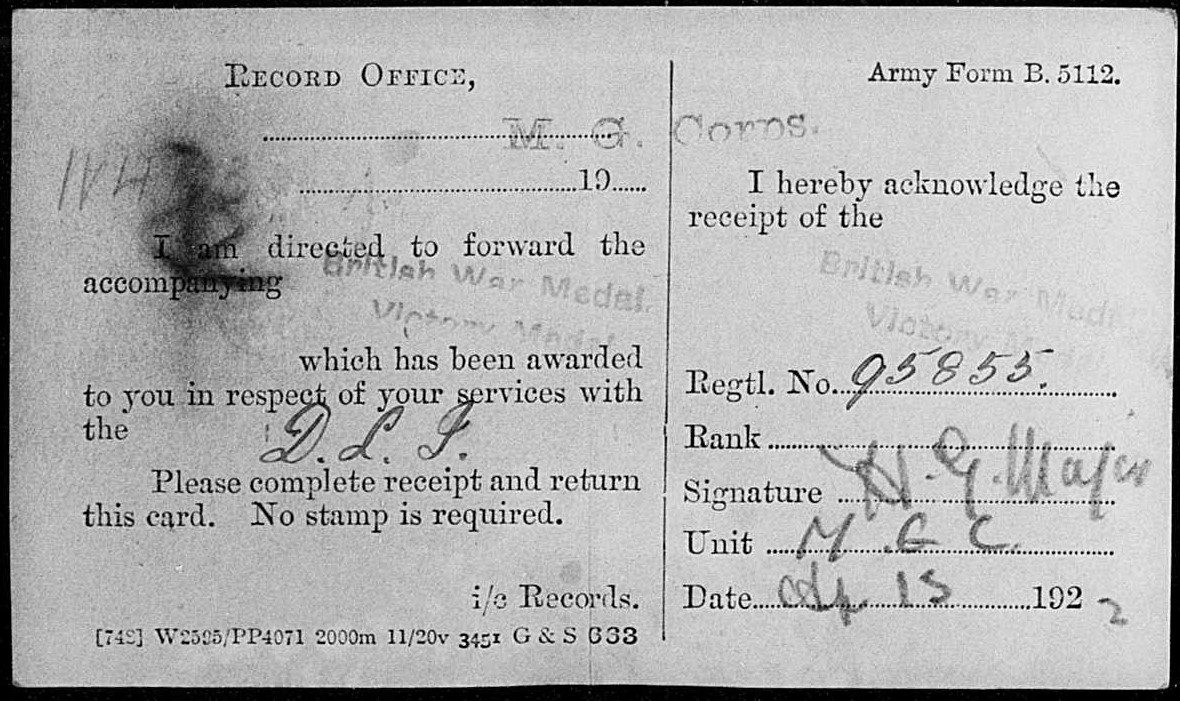 RECORD OFFICE,
M. G. Corps.
19
I am directed to forward the
accompanying
British War Medal.
Victory Medal
which has been awarded
to you in respect of your services with
the D. L. I.
Please complete receipt and return
this card. No stamp is required.
i/c Records.
W2595/PP4071 2000m 11/20v 3451 G & S 633
Army Form B. 5112.
I hereby acknowledge the
receipt of the
British War Medal
Victory Medal
Regtl. No. 95855.
Rank
Signature H. G. Major
Unit M. G. C.
Date Ap 13 1922